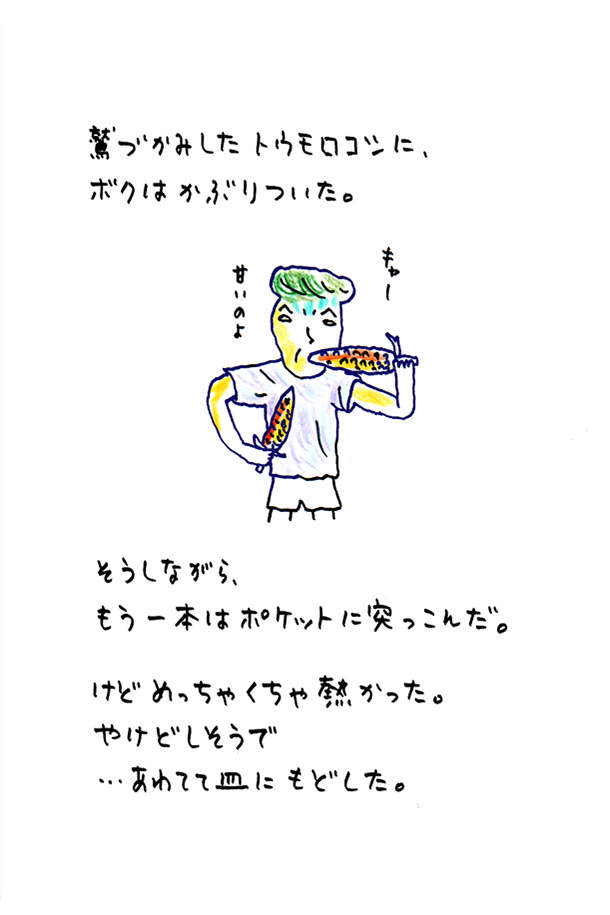 鷲づかみしたトウモロコシに、
ボクはかぶりついた。
キュー
甘いのよ
そうしながら、
もう一本はポケットに突っこんだ。
けどめっちゃくちゃ熱かった。
やけどしそうで
…あわてて皿にもどした。